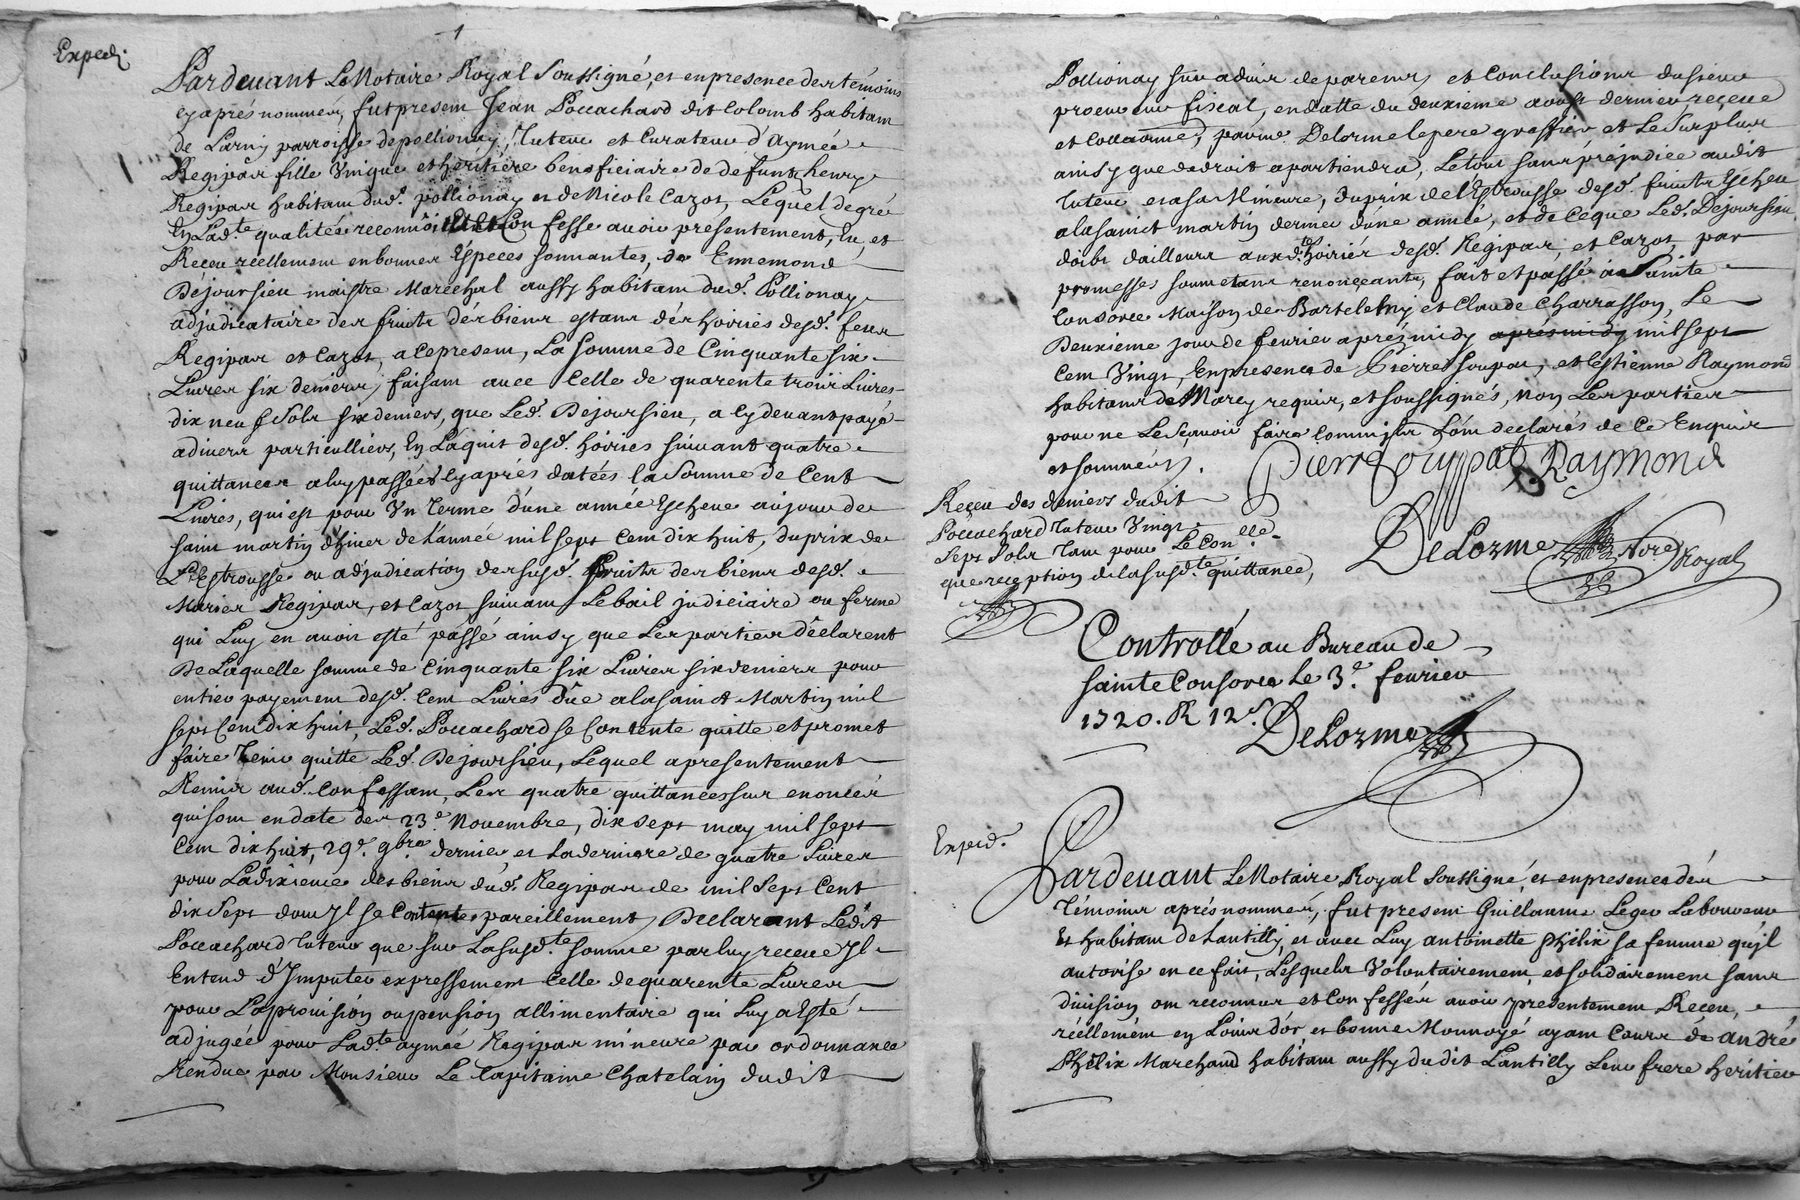 1
Expedi.
Pardevant Le Notaire Royal Soussigné, et en presence des témoins
cy aprés nommes, fut present Jean Poccachard dit Colomb habitant
de Larny parroisse de pollionay, Tuteur et Curateur d'Aymée
Regipas fille Vnique et héritiére beneficiaire de defunts henry
Regipas habitant dud. pollionay et de Nicole Cazot, Lequel de gré
En Lad.te qualité à reconnû et Confesse avoir présentement, Eu, et
Receu réellement en bonnes Espéces sonnantes, de Ennemond
Dejoursieu maistre Maréchal aussy habitant dud. Pollionay
adjudicataire des fruits des biens estans dés hoiries desd. feus
Regipas et Cazot, a ce present, La somme de Cinquante six
Livres six deniers, faisant avec Celle de quarente trois Livres
dix neuf sols six deniers, que Led. Dejoursieu, a cy devant payé
a divers particulliers, En L'aquit desd. hoiries suivant quatre
quittances a luy passées cy aprés datées la somme de Cent
Livres, qui est pour Vn terme d'une année Escheue au jour de
saint martin d'hiver de L'année mil sept Cent dix huit, du prix de
L'Estrousse ou adjudication des susd. fruits des biens desd.
Mariés Regipas, et Cazot suivant Le bail judiciaire ou ferme
qui Luy en avoit esté passé ainsy que Les parties déclarent
De Laquelle somme de Cinquante six Livres six deniers pour
entier payement desd. Cent Livres dûe a la saint Martin mil
sept Cent dix huit, Led. Poccachard se Contente quitte et promet
faire tenir quitte Led. Dejoursieu, Lequel a présentement
Remis aud. Confessant, Les quatre quittances sus enoncés
qui sont en date des 23.e Novembre, dix sept may mil sept
Cent dix huit, 29.e 9bre dernier et la derniere de quatre Livres
pour La dixieme des biens dud. Regipas de mil sept Cent
dix sept dont Jl se Contente pareillement, Declarant Ledit
Poccachard tuteur que sur La susd.te somme par luy receue Jl
Entend d'Jmputer expressement Celle de quarente Livres
pour La provision ou pension allimentaire qui Luy a Esté
adjugée pour Lad.te aymée Regipas mineure par ordonnance
Rendue par Monsieur Le Capitaine Chatelain dudit
Pollionay sur advis de parens, et Conclusions du sieur
procureur fiscal, en datte du deuxieme aoust dernier, receue
et par me. Delorme le pere greffier et Le Surplus
ainsy que de droit apartiendra, Le tout sans préjudice audit
tuteur et a sa Mineure, du prix de L'Estrousse desd. fruits Escheu
a la saint martin dernier d'une année, et de Ce que Led. Dejoursieu
doibt d'ailleurs auxd.tes hoiriés desd. Regipas, et Cazot, par
promesses soumetans renonçeants, fait et passé à Sainte
Consorce Maison de Bartelemy et Claude Charrasson, Le
Deuxieme jour de fevrier aprés midy aprés midy mil sept
Cent Vingt, En presence de Pierre Soupat, et Estienne Raymond
habitans de Marcy requis, et soussignés, non Les parties
pour ne Le sçavoir faire Comm'jls L'ont declarés de Ce Enquis
et sommées.
Pierre Souppat Raymond
Receu des deniers dudit
Poccachard tuteur Vingt
sept sols tant pour Le Con.lle
que reception de la susd.te quittance,
DeLorme Nore Royal
Controllé au Bureau de
sainte Consorce Le 3.e fevrier
1720. R 12s.
DeLorme
Exped.
Pardevant Le Notaire Royal Soussigné, et en presence des
Témoins aprés nommés, fut present Guillaume Leger Laboureur
Et habitant de Lantilly, et avec Luy antoinette Phélix sa femme qu'jl
autorise en ce fait, Lesquels Volontairement, et solidairement sans
division ont reconnus et Confessés avoir présentement Receu,
réellement en Loüis d'or et bonne Monnoyé ayant Cours de andré
Phélix Marchand habitant aussy dudit Lantilly Leur frere héritier